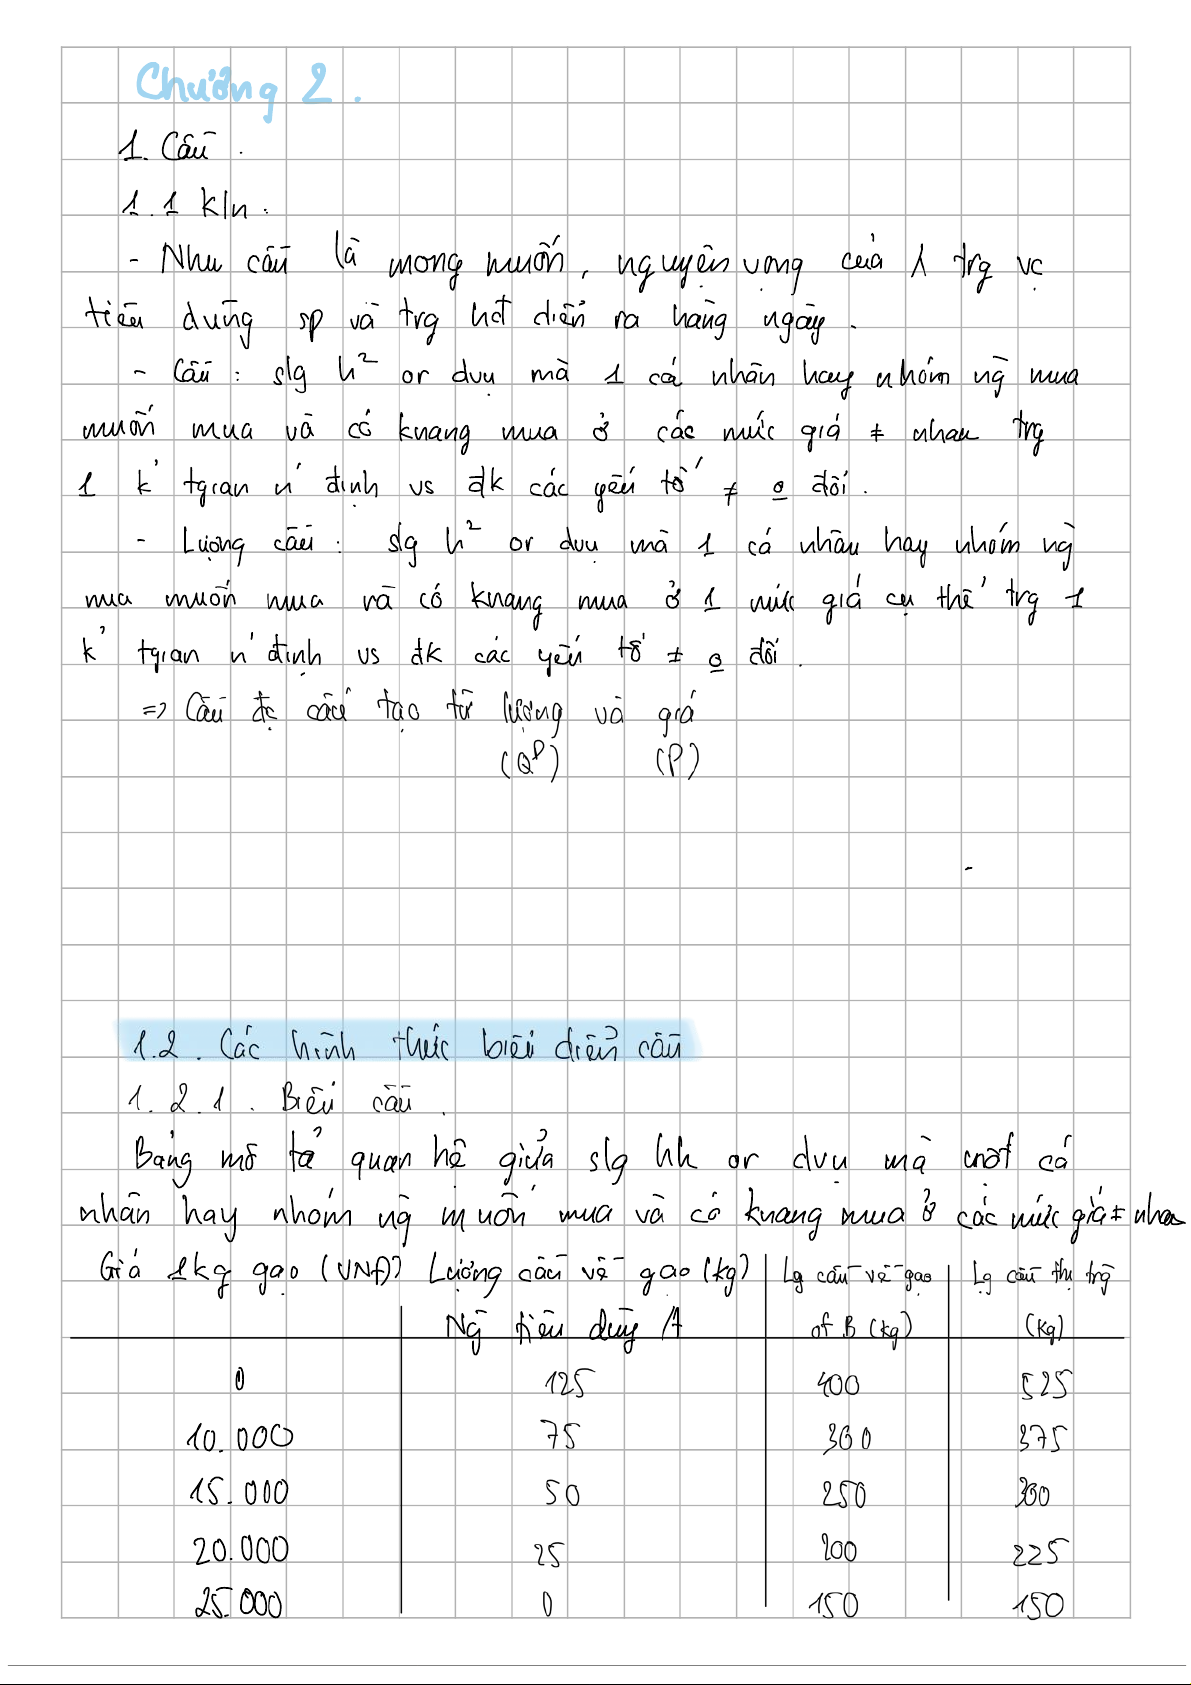 Chương 2.
1. Cầu.
1.1 K/n:
- Nhu cầu là mong muốn, nguyện vọng của 1 trg vc
tiêu dùng sp và trg hđ diễn ra hàng ngày.
- Cầu: slg h² or dvụ mà 1 cá nhân hay nhóm ng̀ mua
muốn mua và có knang mua ở các mức giá ≠ nhau trg
1 k' tgian n' định vs đk các yếu tố ≠ o đổi.
- Lượng cầu: slg h² or dvụ mà 1 cá nhân hay nhóm ng̀
mua muốn mua và có knang mua ở 1 mức giá cụ thể trg 1
k' tgian n' định vs đk các yếu tố ≠ o đổi.
=> Cầu đc cấu tạo từ lượng và giá
(Qᴰ) (P)
1.2. Các hình thức biểu diễn cầu
1.2.1. Biểu cầu.
Bảng mô tả quan hệ giữa slg hh or dvụ mà một cá
nhân hay nhóm ng̀ muốn mua và có knang mua ở các mức giá ≠ nhau
Giá 1kg gạo (VNĐ) Lượng cầu về gạo (kg) Lg cầu về gạo Lg cầu thị trg̀
Ng̀ tiêu dùng A of B (kg) (kg)
0 125 400 525
10.000 75 300 375
15.000 50 250 300
20.000 25 200 225
25.000 0 150 150